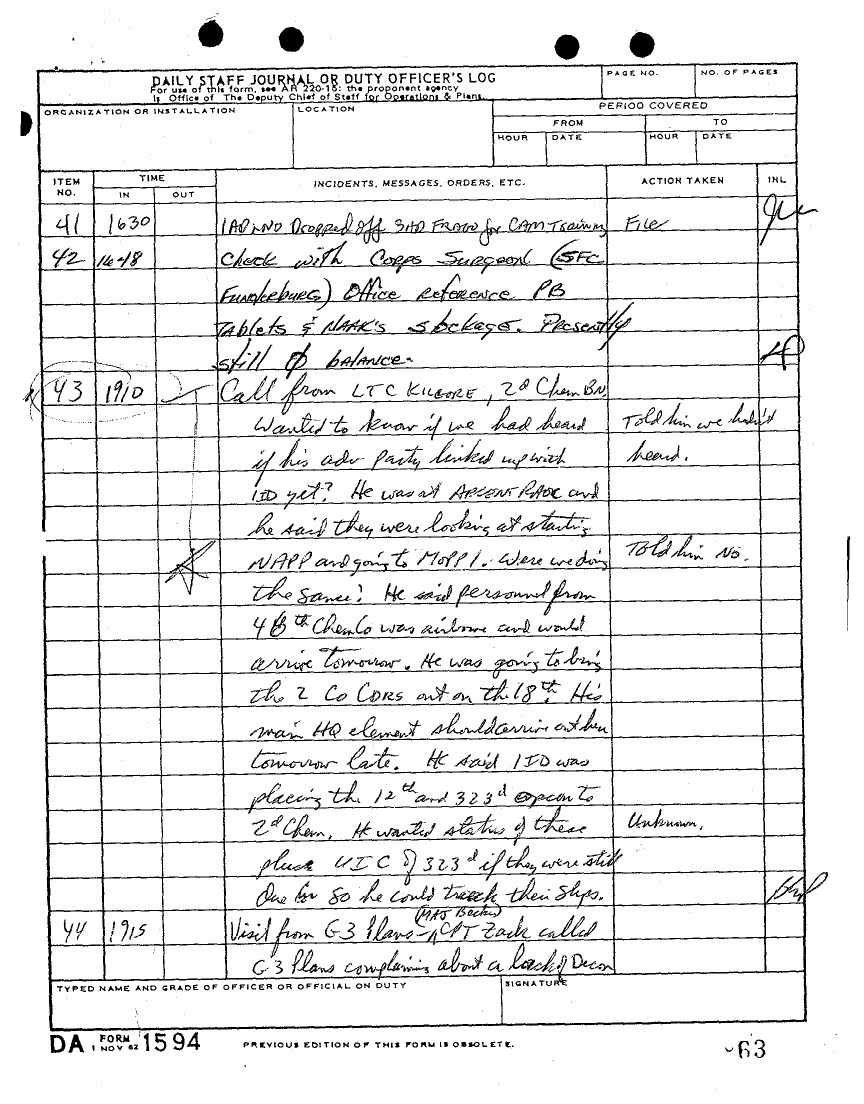 DAILY STAFF JOURNAL OR DUTY OFFICER'S LOG
For use of this form, see AR 220-15; the proponent agency
is Office of The Deputy Chief of Staff for Operations & Plans.
PAGE NO.
NO. OF PAGES
ORGANIZATION OR INSTALLATION
LOCATION
PERIOD COVERED
FROM
TO
HOUR
DATE
HOUR
DATE
ITEM NO.
TIME
IN
OUT
INCIDENTS, MESSAGES, ORDERS, ETC.
ACTION TAKEN
INL
41 1630 1AD LNO Dropped off 3AD FRAGO for CAM Training File
42 1648 Check with Corps Surgeon (SFC
Funkeburg) Office reference PB
Tablets & NAAK's stockage. Presently
still Ø balance.
43 1910 Call from LTC KILGORE, 2d Chem BN.
Wanted to know if we had heard Told him we hadn't
if his adv party linked up with heard.
1ID yet? He was at and
he said they were looking at starting
NAPP and going to MOPP 1. Were we doing Told him No.
the same? He said personnel from
46th Chem Co was airborne and would
arrive tomorrow. He was going to bring
the 2 Co CDRS out on the 18th. His
main HQ element should arrive out here
tomorrow late. He said 1ID was
placing the 12th and 323d opcon to
2d Chem. He wanted status of these Unknown.
plus UIC of 323d if they were still
Due in so he could track their ships.
44 1915 Visit from G3 Plans - (MAJ Becker) CPT Zack called
G3 Plans complaining about a lack of Decon
TYPED NAME AND GRADE OF OFFICER OR OFFICIAL ON DUTY
SIGNATURE
DA FORM 1 NOV 62 1594
PREVIOUS EDITION OF THIS FORM IS OBSOLETE.
63